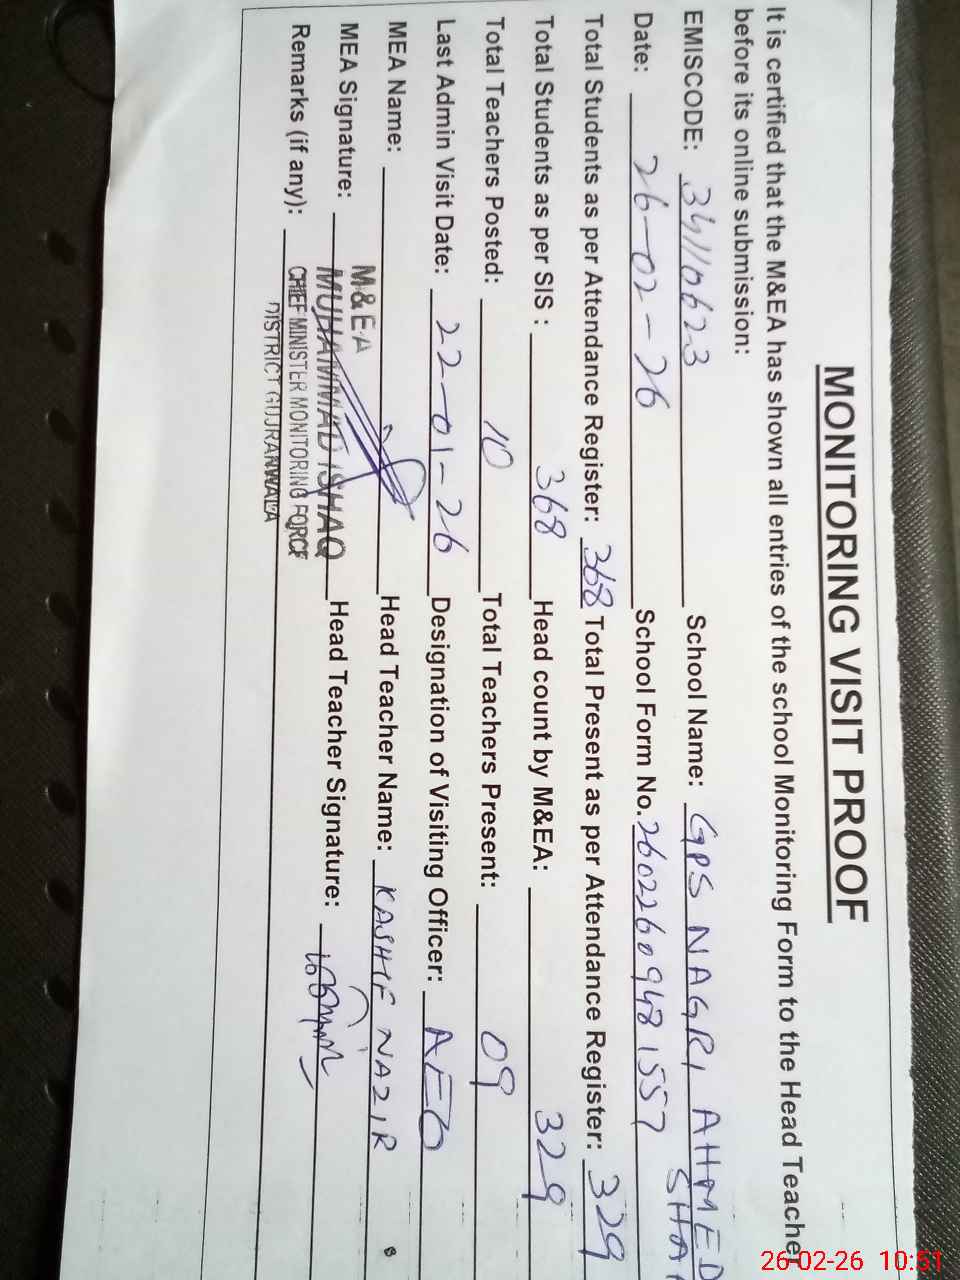 MONITORING VISIT PROOF
It is certified that the M&EA has shown all entries of the school Monitoring Form to the Head Teacher
before its online submission:
EMISCODE: 34110623 School Name: GPS NAGRI AHMED
SHA
Date: 26-02-26 School Form No. 26022609481557
Total Students as per Attendance Register: 368 Total Present as per Attendance Register: 329
Total Students as per SIS : 368 Head count by M&EA: 329
Total Teachers Posted: 10 Total Teachers Present: 09
Last Admin Visit Date: 22-01-26 Designation of Visiting Officer: AEO
MEA Name: Head Teacher Name: KASHIF NAZIR
M&EA
MEA Signature: MUHAMMAD ISHAQ Head Teacher Signature:
Remarks (if any): CHIEF MINISTER MONITORING FORCE
DISTRICT GUJRANWALA
26-02-26 10:51